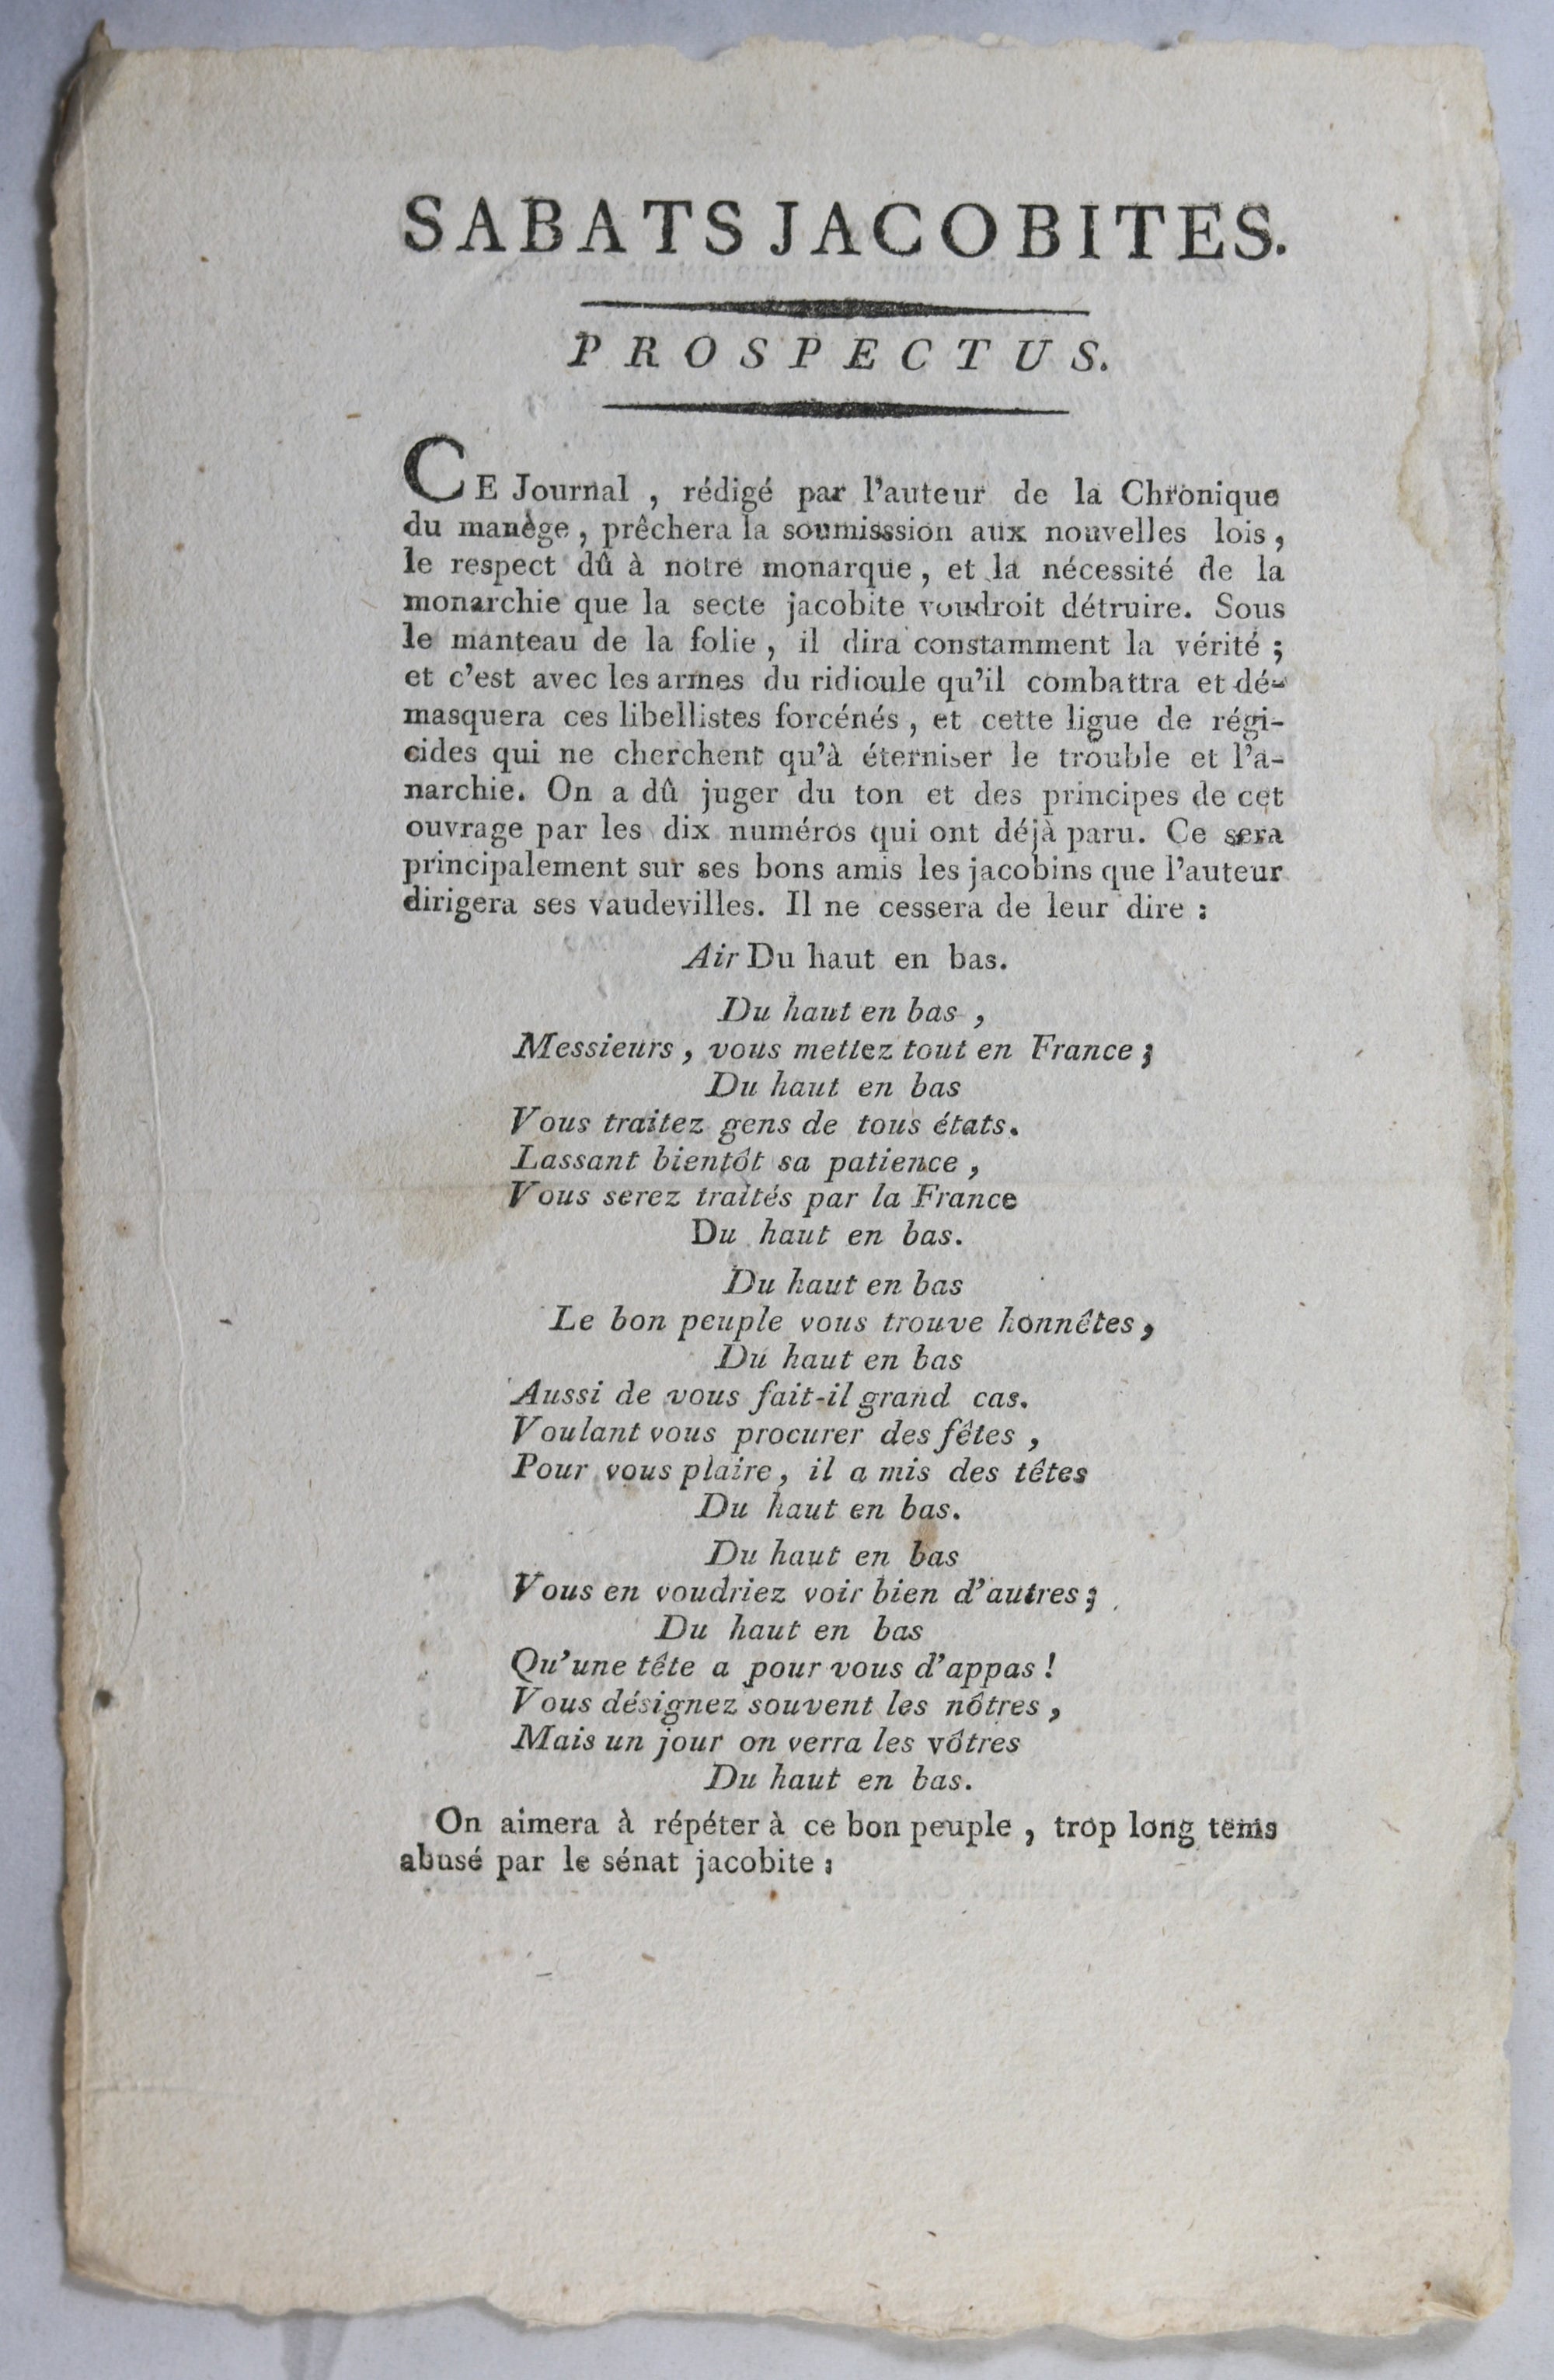 SABATS JACOBITES.
PROSPECTUS.
CE Journal , rédigé par l'auteur de la Chronique
du manège , prêchera la soumisssion aux nouvelles lois ,
le respect dû à notre monarque , et la nécessité de la
monarchie que la secte jacobite voudroit détruire. Sous
le manteau de la folie , il dira constamment la vérité ;
et c'est avec les armes du ridicule qu'il combattra et dé-
masquera ces libellistes forcénés , et cette ligue de régi-
cides qui ne cherchent qu'à éterniser le trouble et l'a-
narchie. On a dû juger du ton et des principes de cet
ouvrage par les dix numéros qui ont déjà paru. Ce sera
principalement sur ses bons amis les jacobins que l'auteur
dirigera ses vaudevilles. Il ne cessera de leur dire :
Air Du haut en bas.
Du haut en bas ,
Messieurs , vous mettez tout en France ;
Du haut en bas
Vous traitez gens de tous états.
Lassant bientôt sa patience ,
Vous serez traités par la France
Du haut en bas.
Du haut en bas
Le bon peuple vous trouve honnêtes ,
Du haut en bas
Aussi de vous fait-il grand cas.
Voulant vous procurer des fêtes ,
Pour vous plaire , il a mis des têtes
Du haut en bas.
Du haut en bas
Vous en voudriez voir bien d'autres ;
Du haut en bas
Qu'une tête a pour vous d'appas !
Vous désignez souvent les nôtres ,
Mais un jour on verra les vôtres
Du haut en bas.
On aimera à répéter à ce bon peuple , trop long tems
abusé par le sénat jacobite :